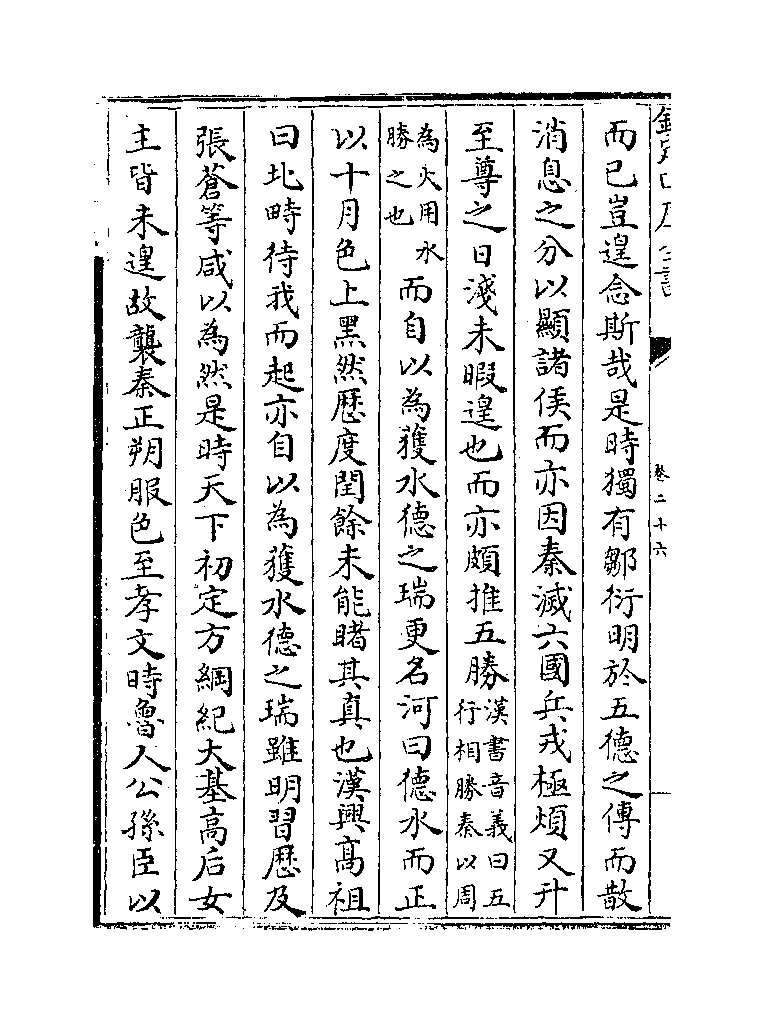 欽定四庫全書
卷二十六
而已豈遑念斯哉是時獨有鄒衍明於五德之傳而散
消息之分以顯諸侯而亦因秦滅六國兵戎極煩又升
至尊之日淺未暇遑也而亦頗推五勝漢書音義曰五行相勝秦以周
為火用水勝之也而自以為獲水德之瑞更名河曰德水而正
以十月色上黑然歴度閏餘未能睹其真也漢興髙祖
曰北畤待我而起亦自以為獲水德之瑞雖明習歴及
張蒼等咸以為然是時天下初定方綱紀大基高后女
主皆未遑故襲秦正朔服色至孝文時魯人公孫臣以